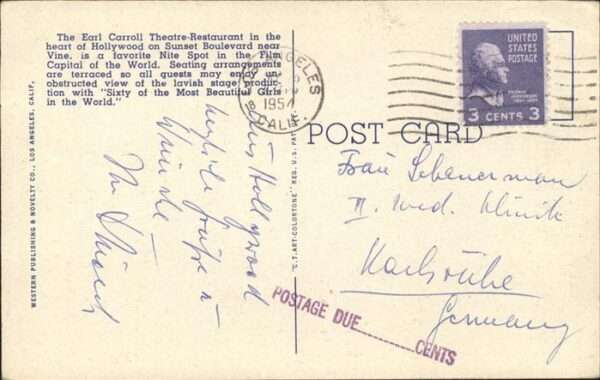 The Earl Carroll Theatre-Restaurant in the
heart of Hollywood on Sunset Boulevard near
Vine, is a favorite Nite Spot in the Film
Capital of the World. Seating arrangements
are terraced so all guests may enjoy un-
obstructed view of the lavish stage produc-
tion with "Sixty of the Most Beautiful Girls
in the World."
WESTERN PUBLISHING & NOVELTY CO., LOS ANGELES, CALIF.
LOS ANGELES
1954
CALIF.
UNITED
STATES
POSTAGE
3 CENTS 3
POST CARD
"C.T. ART-COLORTONE" REG. U.S. PAT.
Aus Hollywood
herzliche Grüße u.
Wünsche
Frau Scheuerman
II. Med. Klinik
Karlsruhe
Germany
POSTAGE DUE CENTS